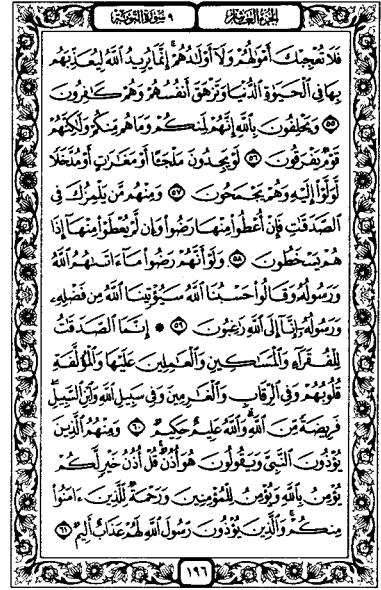 الجزء العاشر
٩ سورة التوبة
فَلَا تُعْجِبْكَ أَمْوَٰلُهُمْ وَلَآ أَوْلَٰدُهُمْ ۚ إِنَّمَا يُرِيدُ ٱللَّهُ لِيُعَذِّبَهُم
بِهَا فِى ٱلْحَيَوٰةِ ٱلدُّنْيَا وَتَزْهَقَ أَنفُسُهُمْ وَهُمْ كَٰفِرُونَ
۝٥٥ وَيَحْلِفُونَ بِٱللَّهِ إِنَّهُمْ لَمِنكُمْ وَمَا هُم مِّنكُمْ وَلَٰكِنَّهُمْ
قَوْمٌ يَفْرَقُونَ ۝٥٦ لَوْ يَجِدُونَ مَلْجَـًٔا أَوْ مَغَٰرَٰتٍ أَوْ مُدَّخَلًا
لَّوَلَّوْا۟ إِلَيْهِ وَهُمْ يَجْمَحُونَ ۝٥٧ وَمِنْهُم مَّن يَلْمِزُكَ فِى
ٱلصَّدَقَٰتِ فَإِنْ أُعْطُوا۟ مِنْهَا رَضُوا۟ وَإِن لَّمْ يُعْطَوْا۟ مِنْهَآ إِذَا
هُمْ يَسْخَطُونَ ۝٥٨ وَلَوْ أَنَّهُمْ رَضُوا۟ مَآ ءَاتَىٰهُمُ ٱللَّهُ
وَرَسُولُهُۥ وَقَالُوا۟ حَسْبُنَا ٱللَّهُ سَيُؤْتِينَا ٱللَّهُ مِن فَضْلِهِۦ
وَرَسُولُهُۥٓ إِنَّآ إِلَى ٱللَّهِ رَٰغِبُونَ ۝٥٩ ۞ إِنَّمَا ٱلصَّدَقَٰتُ
لِلْفُقَرَآءِ وَٱلْمَسَٰكِينِ وَٱلْعَٰمِلِينَ عَلَيْهَا وَٱلْمُؤَلَّفَةِ
قُلُوبُهُمْ وَفِى ٱلرِّقَابِ وَٱلْغَٰرِمِينَ وَفِى سَبِيلِ ٱللَّهِ وَٱبْنِ ٱلسَّبِيلِ ۖ
فَرِيضَةً مِّنَ ٱللَّهِ ۗ وَٱللَّهُ عَلِيمٌ حَكِيمٌ ۝٦٠ وَمِنْهُمُ ٱلَّذِينَ
يُؤْذُونَ ٱلنَّبِىَّ وَيَقُولُونَ هُوَ أُذُنٌ ۚ قُلْ أُذُنُ خَيْرٍ لَّكُمْ
يُؤْمِنُ بِٱللَّهِ وَيُؤْمِنُ لِلْمُؤْمِنِينَ وَرَحْمَةٌ لِّلَّذِينَ ءَامَنُوا۟
مِنكُمْ ۚ وَٱلَّذِينَ يُؤْذُونَ رَسُولَ ٱللَّهِ لَهُمْ عَذَابٌ أَلِيمٌ ۝٦١
١٩٦